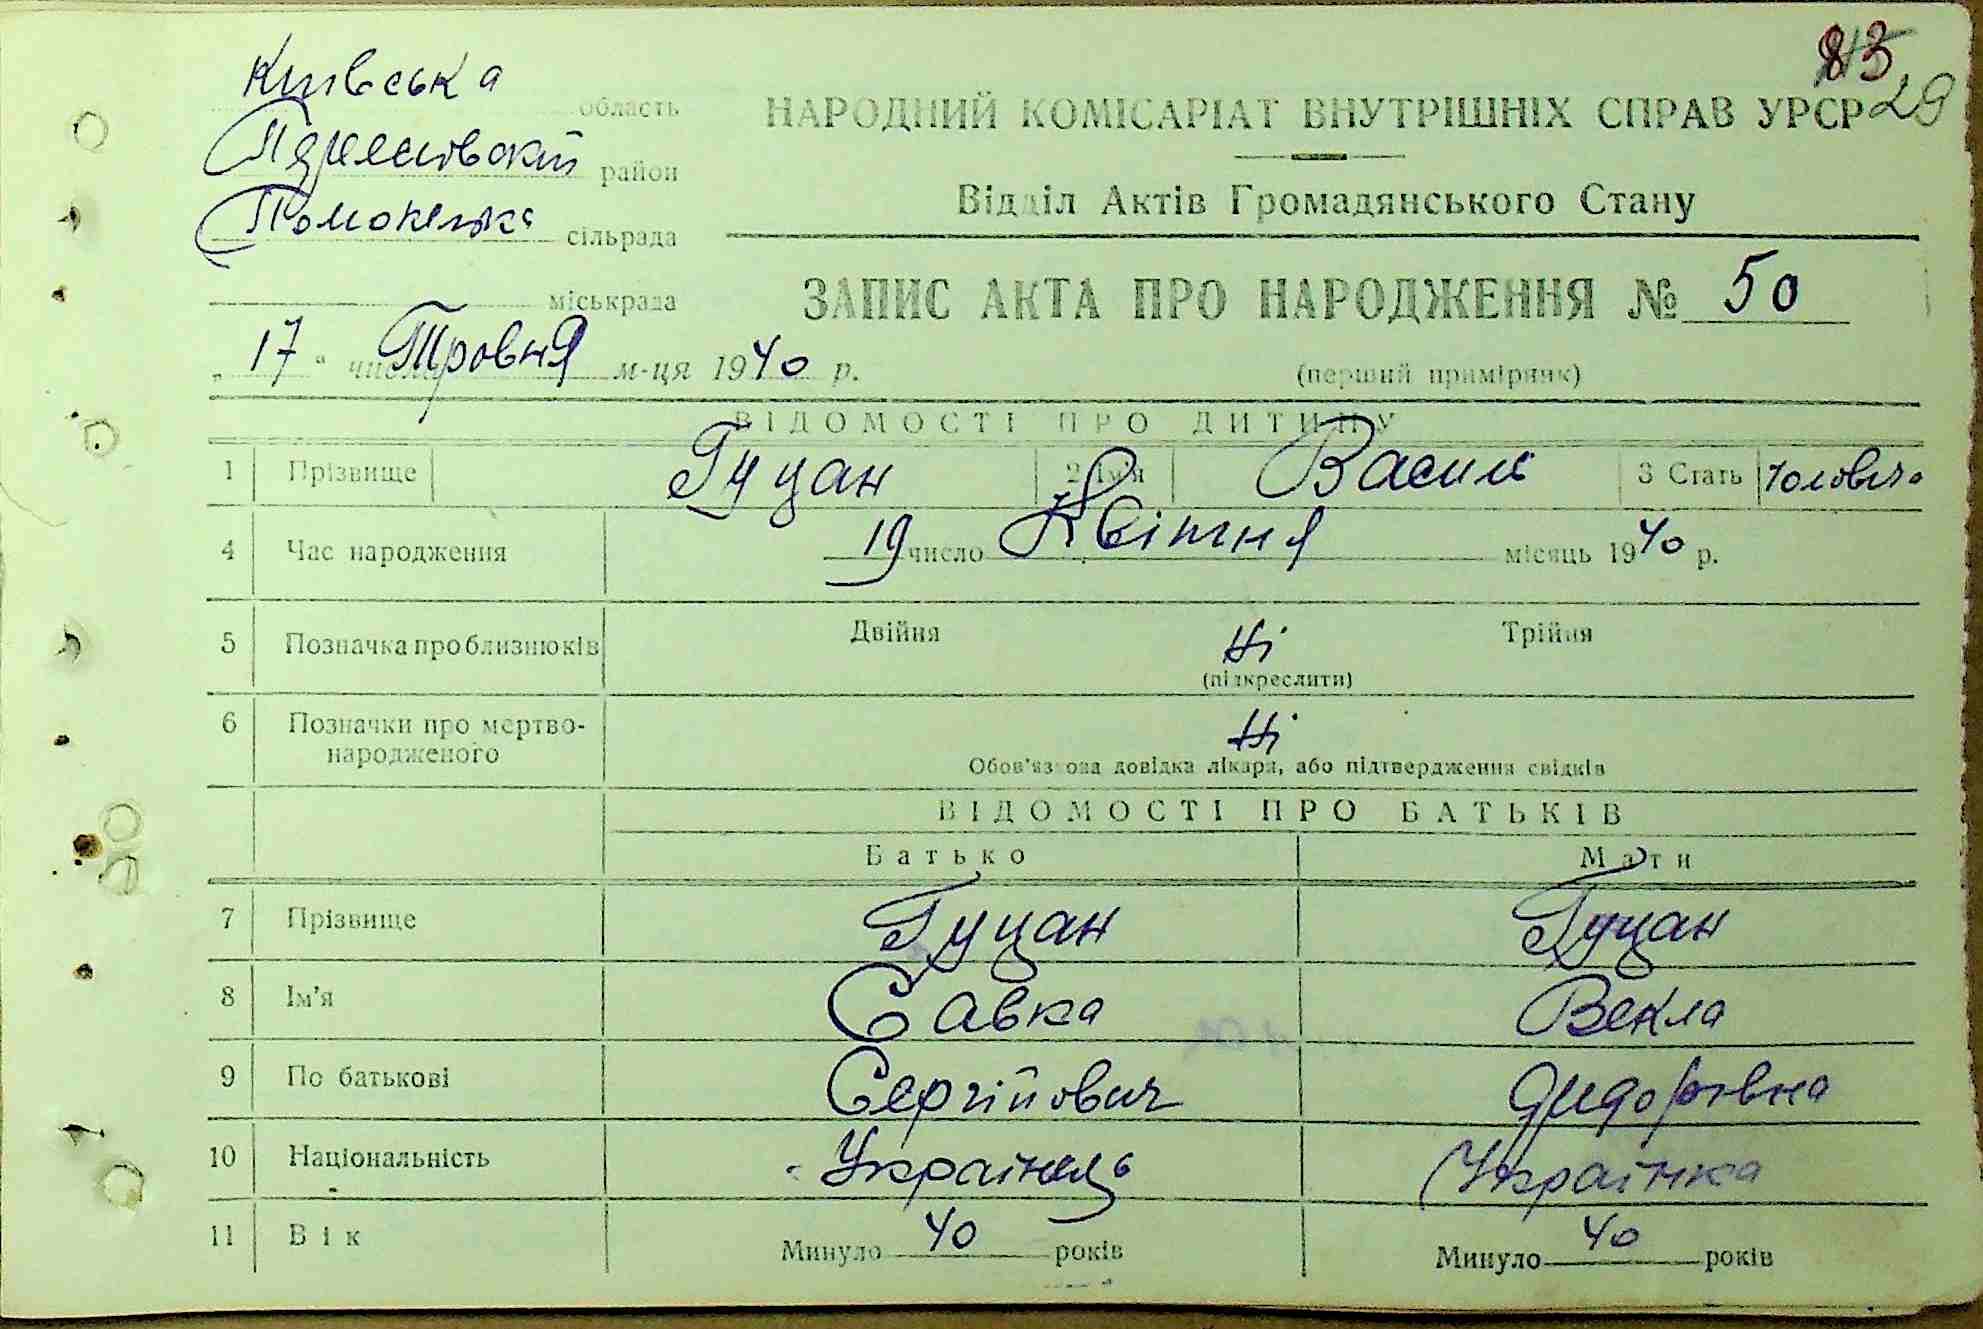 Київська область
район
сільрада
міськрада
83
29
НАРОДНИЙ КОМІСАРІАТ ВНУТРІШНІХ СПРАВ УРСР
Відділ Актів Громадянського Стану
ЗАПИС АКТА ПРО НАРОДЖЕННЯ № 50
(перший примірник)
„17“ числа Тровня м-ця 1940 р.
ВІДОМОСТІ ПРО ДИТИНУ
1 Прізвище Гуцан 2 Ім'я Василь 3 Стать
4 Час народження 19 число Квітня місяць 1940 р.
5 Позначка про близнюків Двійня Ні Трійня
(підкреслити)
6 Позначки про мертво-
народженого Ні
Обов'язкова довідка лікаря, або підтвердження свідків
ВІДОМОСТІ ПРО БАТЬКІВ
Батько Мати
7 Прізвище Гуцан Гуцан
8 Ім'я Савка Векла
9 По батькові Сергійович
10 Національність Українець Українка
11 Вік Минуло 40 років Минуло 40 років